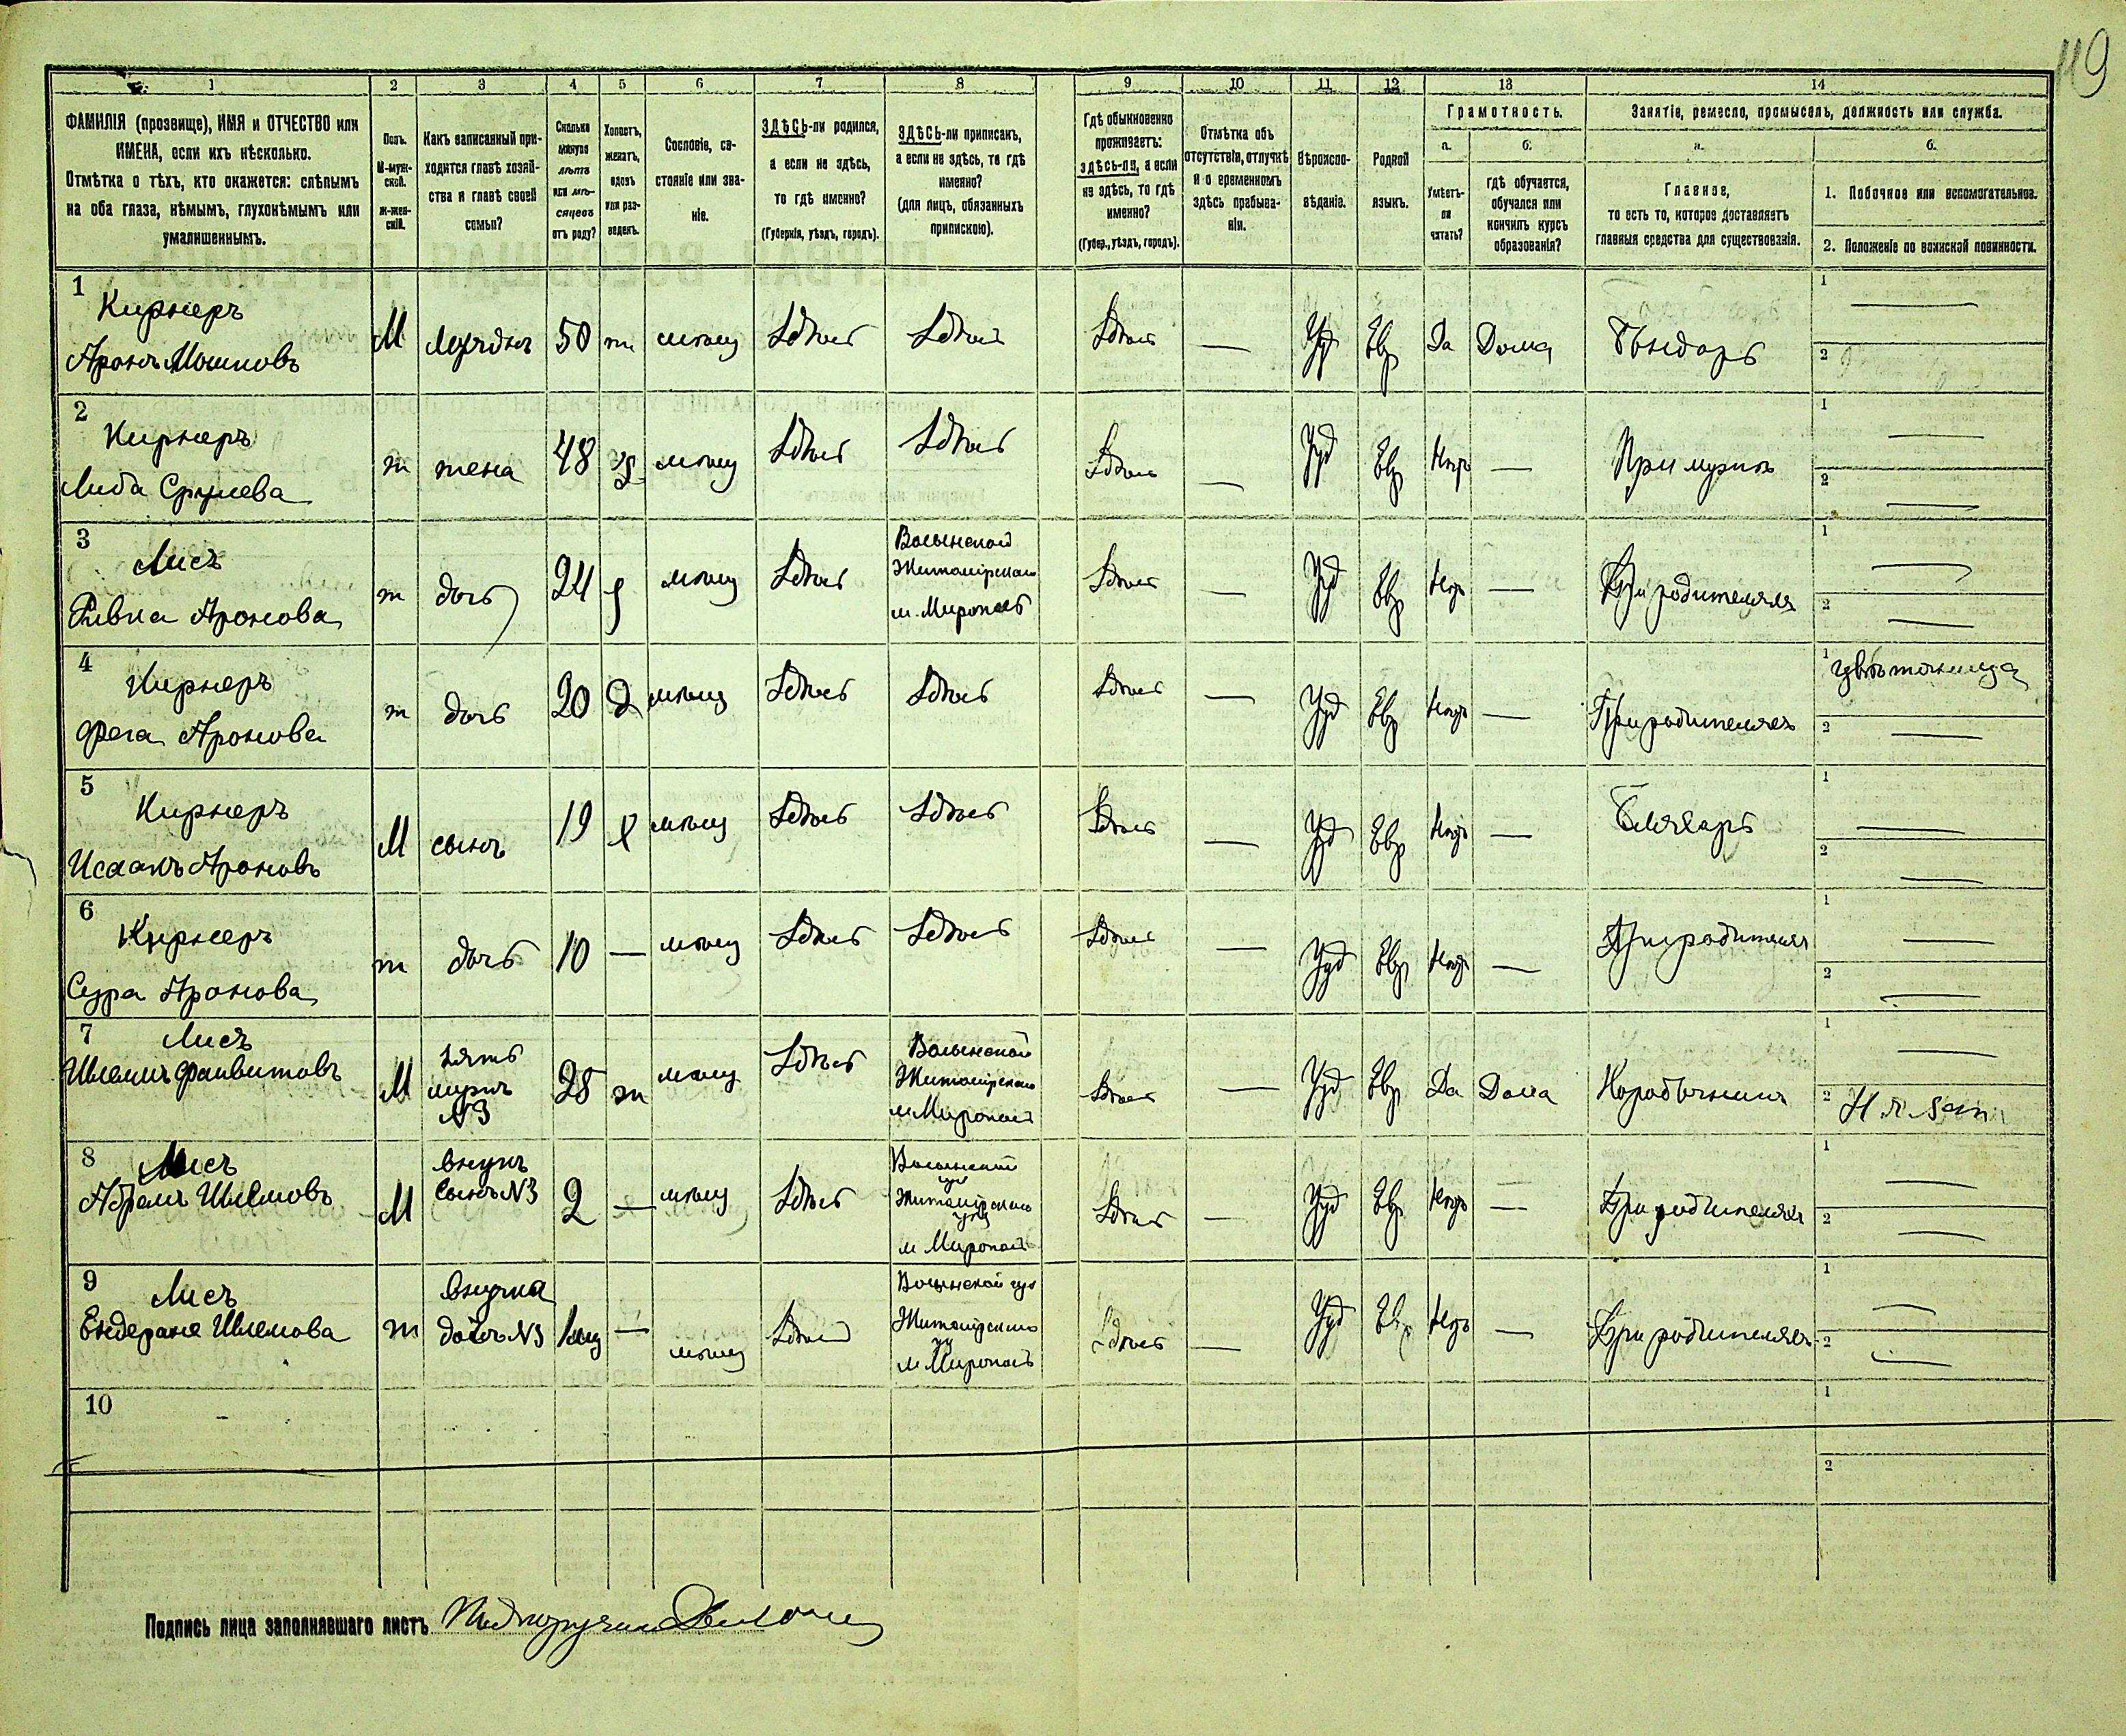 119
1 2 3 4 5 6 7 8 9 10 11 12 13 14
ФАМИЛІЯ (прозвище), ИМЯ и ОТЧЕСТВО или
ИМЕНА, если ихъ нѣсколько.
Отмѣтка о тѣхъ, кто окажется: слѣпымъ
на оба глаза, нѣмымъ, глухонѣмымъ или
умалишеннымъ.
Полъ.
М-муж-
ской.
Ж-жен-
скій.
Какъ записанный при-
ходится главѣ хозяй-
ства и главѣ своей
семьи?
Сколько
минуло
лѣтъ
или мѣ-
сяцевъ
отъ роду?
Холостъ,
женатъ,
вдовъ
или раз-
веденъ.
Сословіе, со-
стояніе или зва-
ніе.
ЗДѢСЬ-ли родился,
а если не здѣсь,
то гдѣ именно?
(Губернія, уѣздъ, городъ).
ЗДѢСЬ-ли приписанъ,
а если не здѣсь, то гдѣ
именно?
(для лицъ, обязанныхъ
припискою).
Гдѣ обыкновенно
проживаетъ:
здѣсь-ли, а если
не здѣсь, то гдѣ
именно?
(Губер., уѣздъ, городъ).
Отмѣтка объ
отсутствіи, отлучкѣ
и о временномъ
здѣсь пребыва-
ніи.
Вѣроиспо-
вѣданіе.
Родной
языкъ.
Грамотность.
а. б.
Умѣетъ-
ли
читать?
гдѣ обучается,
обучался или
кончилъ курсъ
образованія?
Занятіе, ремесло, промыселъ, должность или служба.
а. б.
Главное,
то есть то, которое доставляетъ
главныя средства для существованія.
1. Побочное или вспомогательное.
2. Положеніе по воинской повинности.
1 Кирнеръ
Аронъ Мошковъ М 50 ж мѣщ Здѣсь Здѣсь Здѣсь — Іуд Евр Да Дома Бондарь
1 —
2
2 Кирнеръ
Либа Срулева ж жена 48 з мѣщ Здѣсь Здѣсь Здѣсь — Іуд Евр Нѣтъ — При мужѣ
1 —
2 —
3 Лисъ
Ривка Аронова ж дочь 24 мѣщ Здѣсь Волынской
Житомірскаго
м. Мирополь Здѣсь — Іуд Евр Нѣтъ — При родителяхъ
1 —
2 —
4 Кирнеръ
Фега Аронова ж дочь 20 д мѣщ Здѣсь Здѣсь Здѣсь — Іуд Евр Нѣтъ — При родителяхъ
1 цвѣточница
2 —
5 Кирнеръ
Исаакъ Ароновъ М сынъ 19 х мѣщ Здѣсь Здѣсь Здѣсь — Іуд Евр Нѣтъ — Бляхарь
1 —
2 —
6 Кирнеръ
Сура Аронова ж дочь 10 — мѣщ Здѣсь Здѣсь Здѣсь — Іуд Евр Нѣтъ — При родителяхъ
1 —
2 —
7 Лисъ
Шлема М зять
мужъ
N3 28 ж мѣщ Здѣсь Волынской
Житомірскаго
м Мирополь Здѣсь — Іуд Евр Да Дома Коробочникъ
1 —
2
8 Лисъ
Абрамъ Шлемовъ М внукъ
сынъ N3 2 — мѣщ Здѣсь Волынской
Житомірскаго
м Мирополь Здѣсь — Іуд Евр Нѣтъ — При родителяхъ
1 —
2 —
9 Лисъ
Шлемова ж внучка
дочь N3 — мѣщ Здѣсь Волынской губ
Житомірскаго
м Мирополь Здѣсь — Іуд Евр Нѣтъ — При родителяхъ
1 —
2 —
10
1
2
Подпись лица заполнявшаго листъ